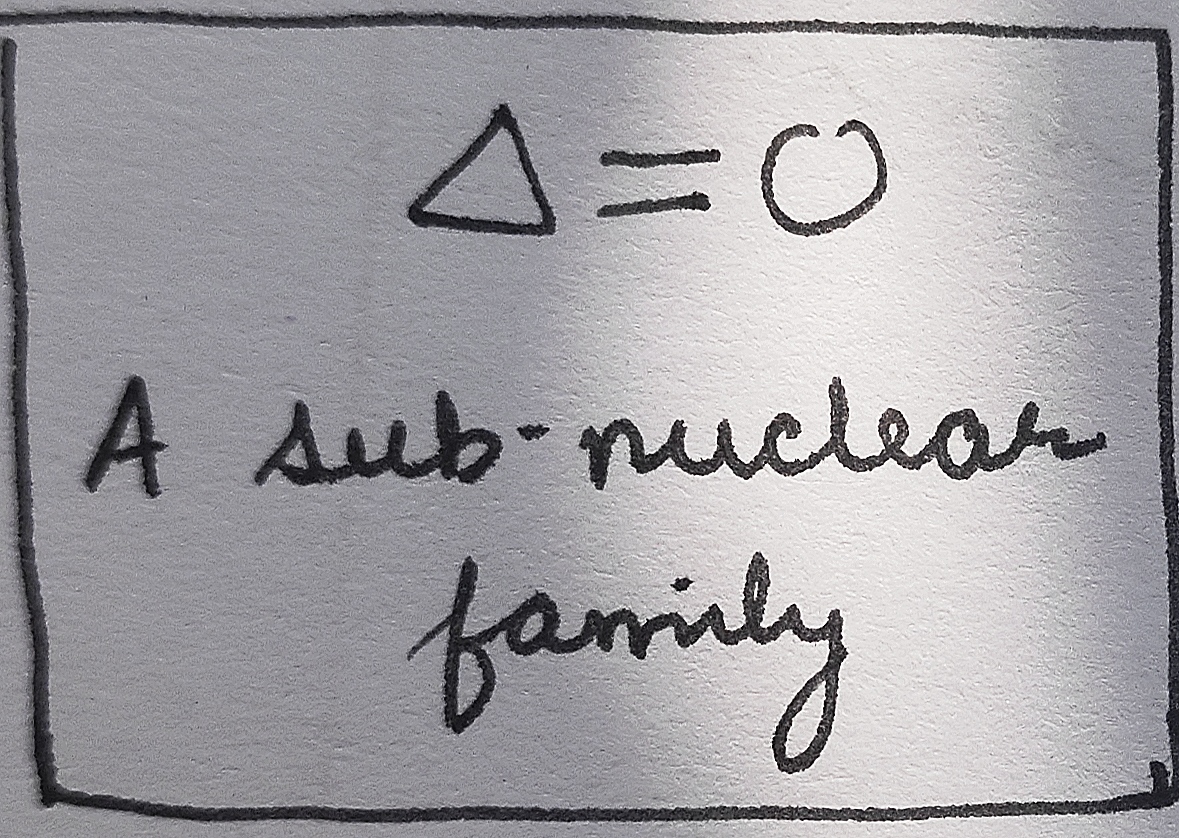 Δ = O
A sub-nuclear
family